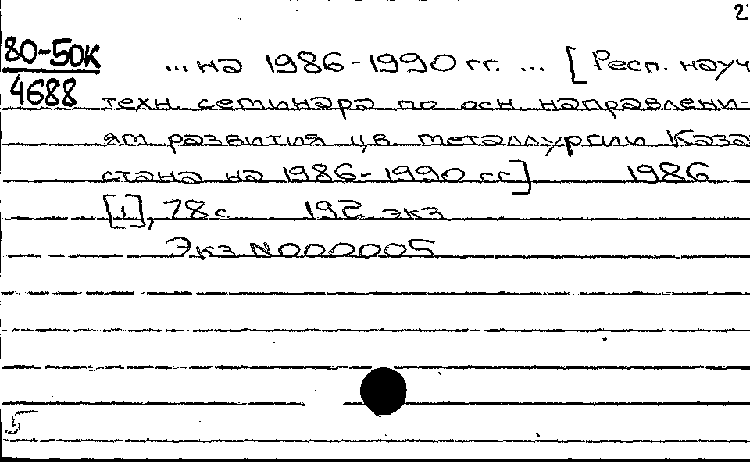 2
80-50К
4688
... на 1986-1990 гг. ... [Респ. науч
техн. семинара по осн. направлени-
ям развития цв. металлургии Каза
стана на 1986-1990 гг] 1986
[1], 78с 192 экз
Экз N000005
5